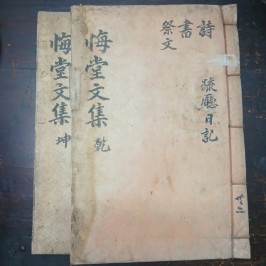 詩
書
祭文
疏廳日記
悔堂文集 乾
悔堂文集 坤